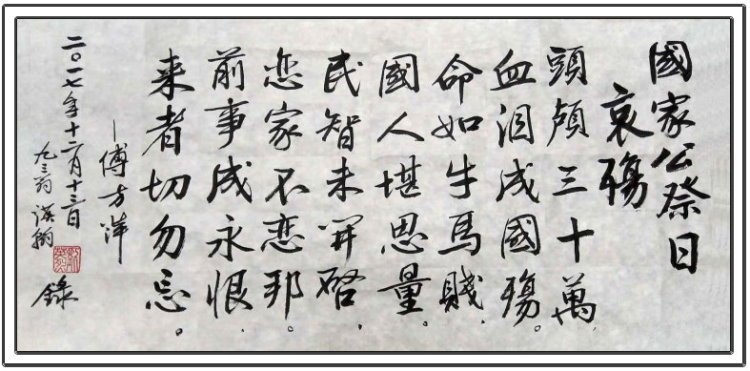 國家公祭日
哀殤
頭顱三十萬,
血泪成國殤。
命如牛馬賤,
國人堪思量。
民智未開啓,
恋家不恋邦。
前事成永恨,
来者切勿忘。
—傅方
二〇一七年十二月十三日
九三翁 錄